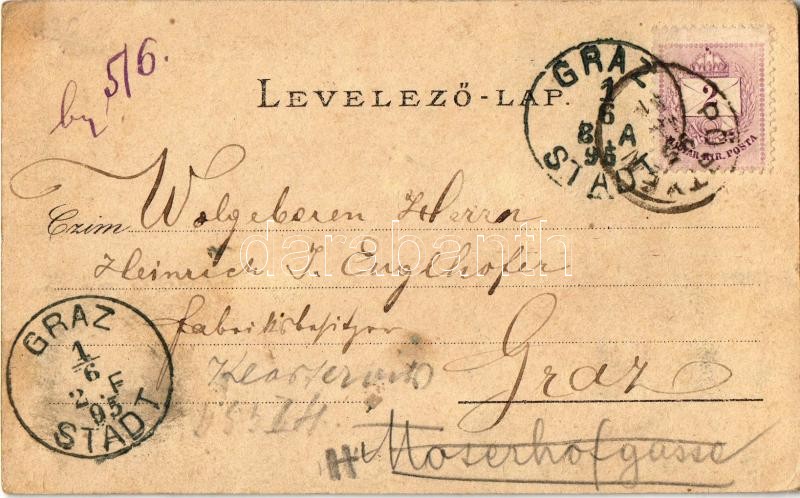 by 5/6.
LEVELEZŐ-LAP.
GRAZ
1
6
8 A
95
STADT
PÖSTYÉN
2
MAGYAR KIR. POSTA
Czim Wolgeboren Herrn
Heinrich J. Englhofer
Fabriksbesitzer
Graz
Moserhofgasse
GRAZ
1
6
2 F
95
STADT
darabanth